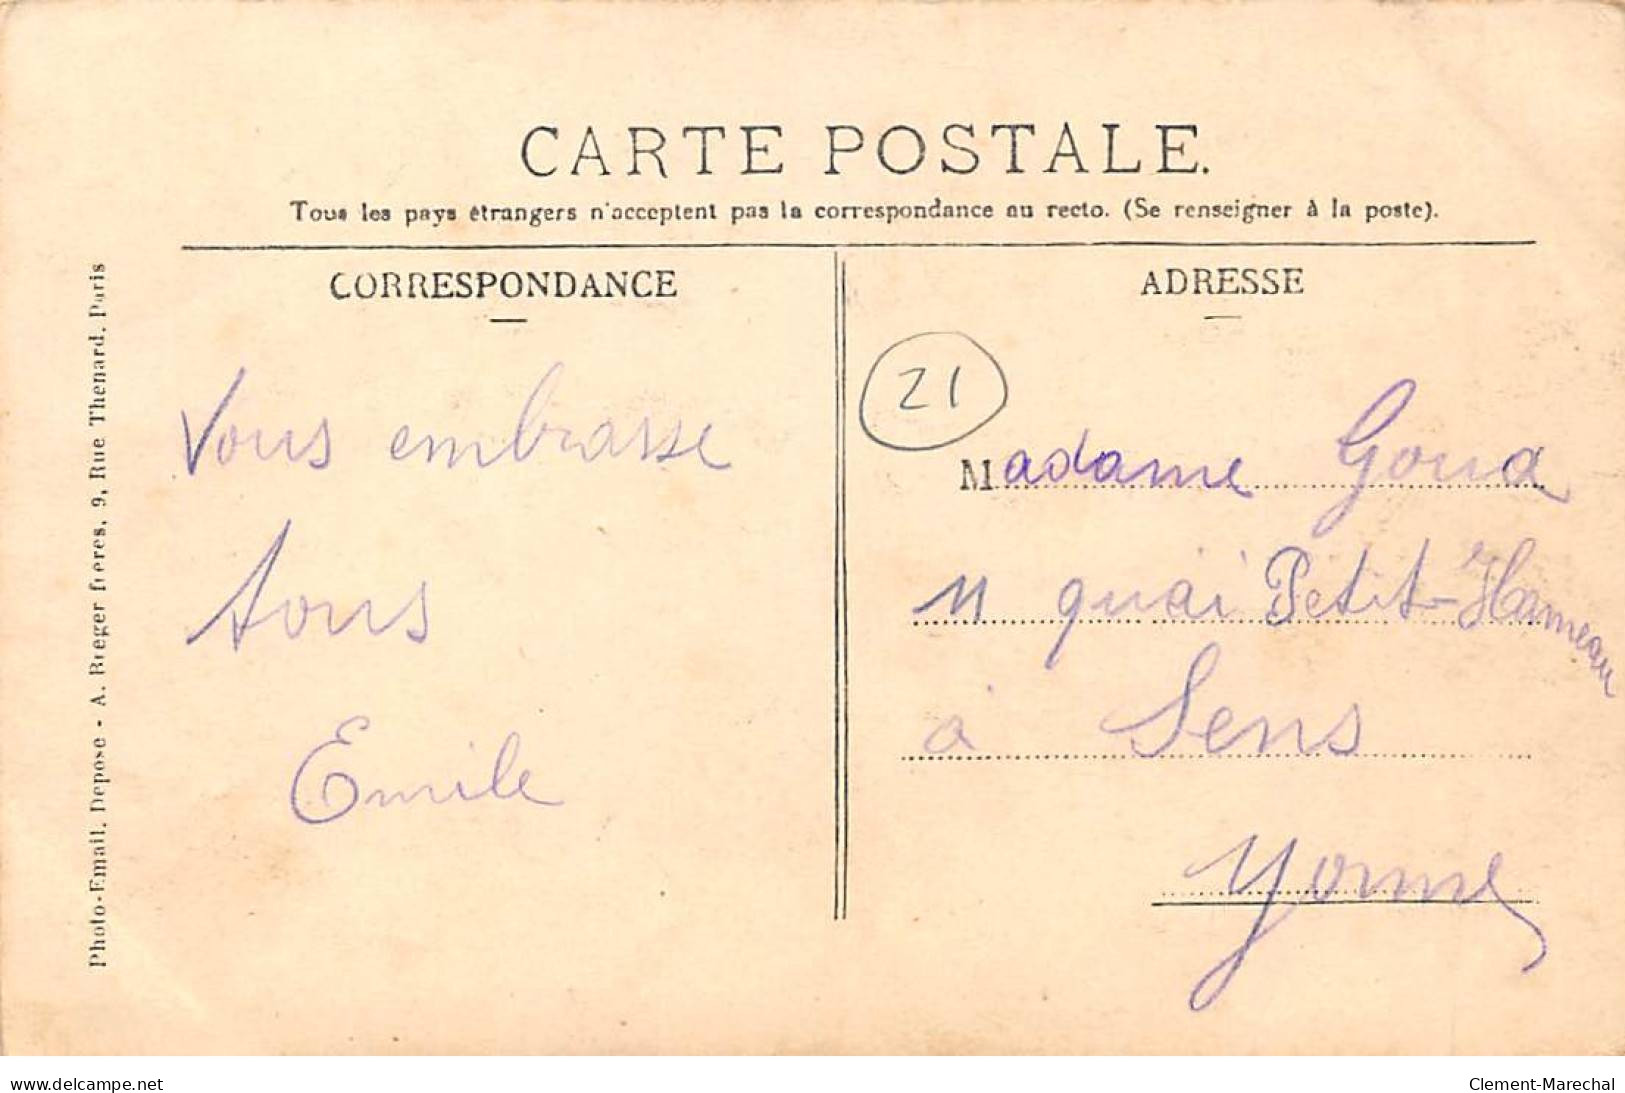 CARTE POSTALE.
Tous les pays étrangers n'acceptent pas la correspondance au recto. (Se renseigner à la poste).
CORRESPONDANCE
Vous embrasse
tous
Emile
ADRESSE
21
Madame Goua
11 quai Petit-Hameau
à Sens
Yonne
Photo-Email. Déposé - A. Breger frères, 9, Rue Thenard, Paris
www.delcampe.net
Clement-Marechal